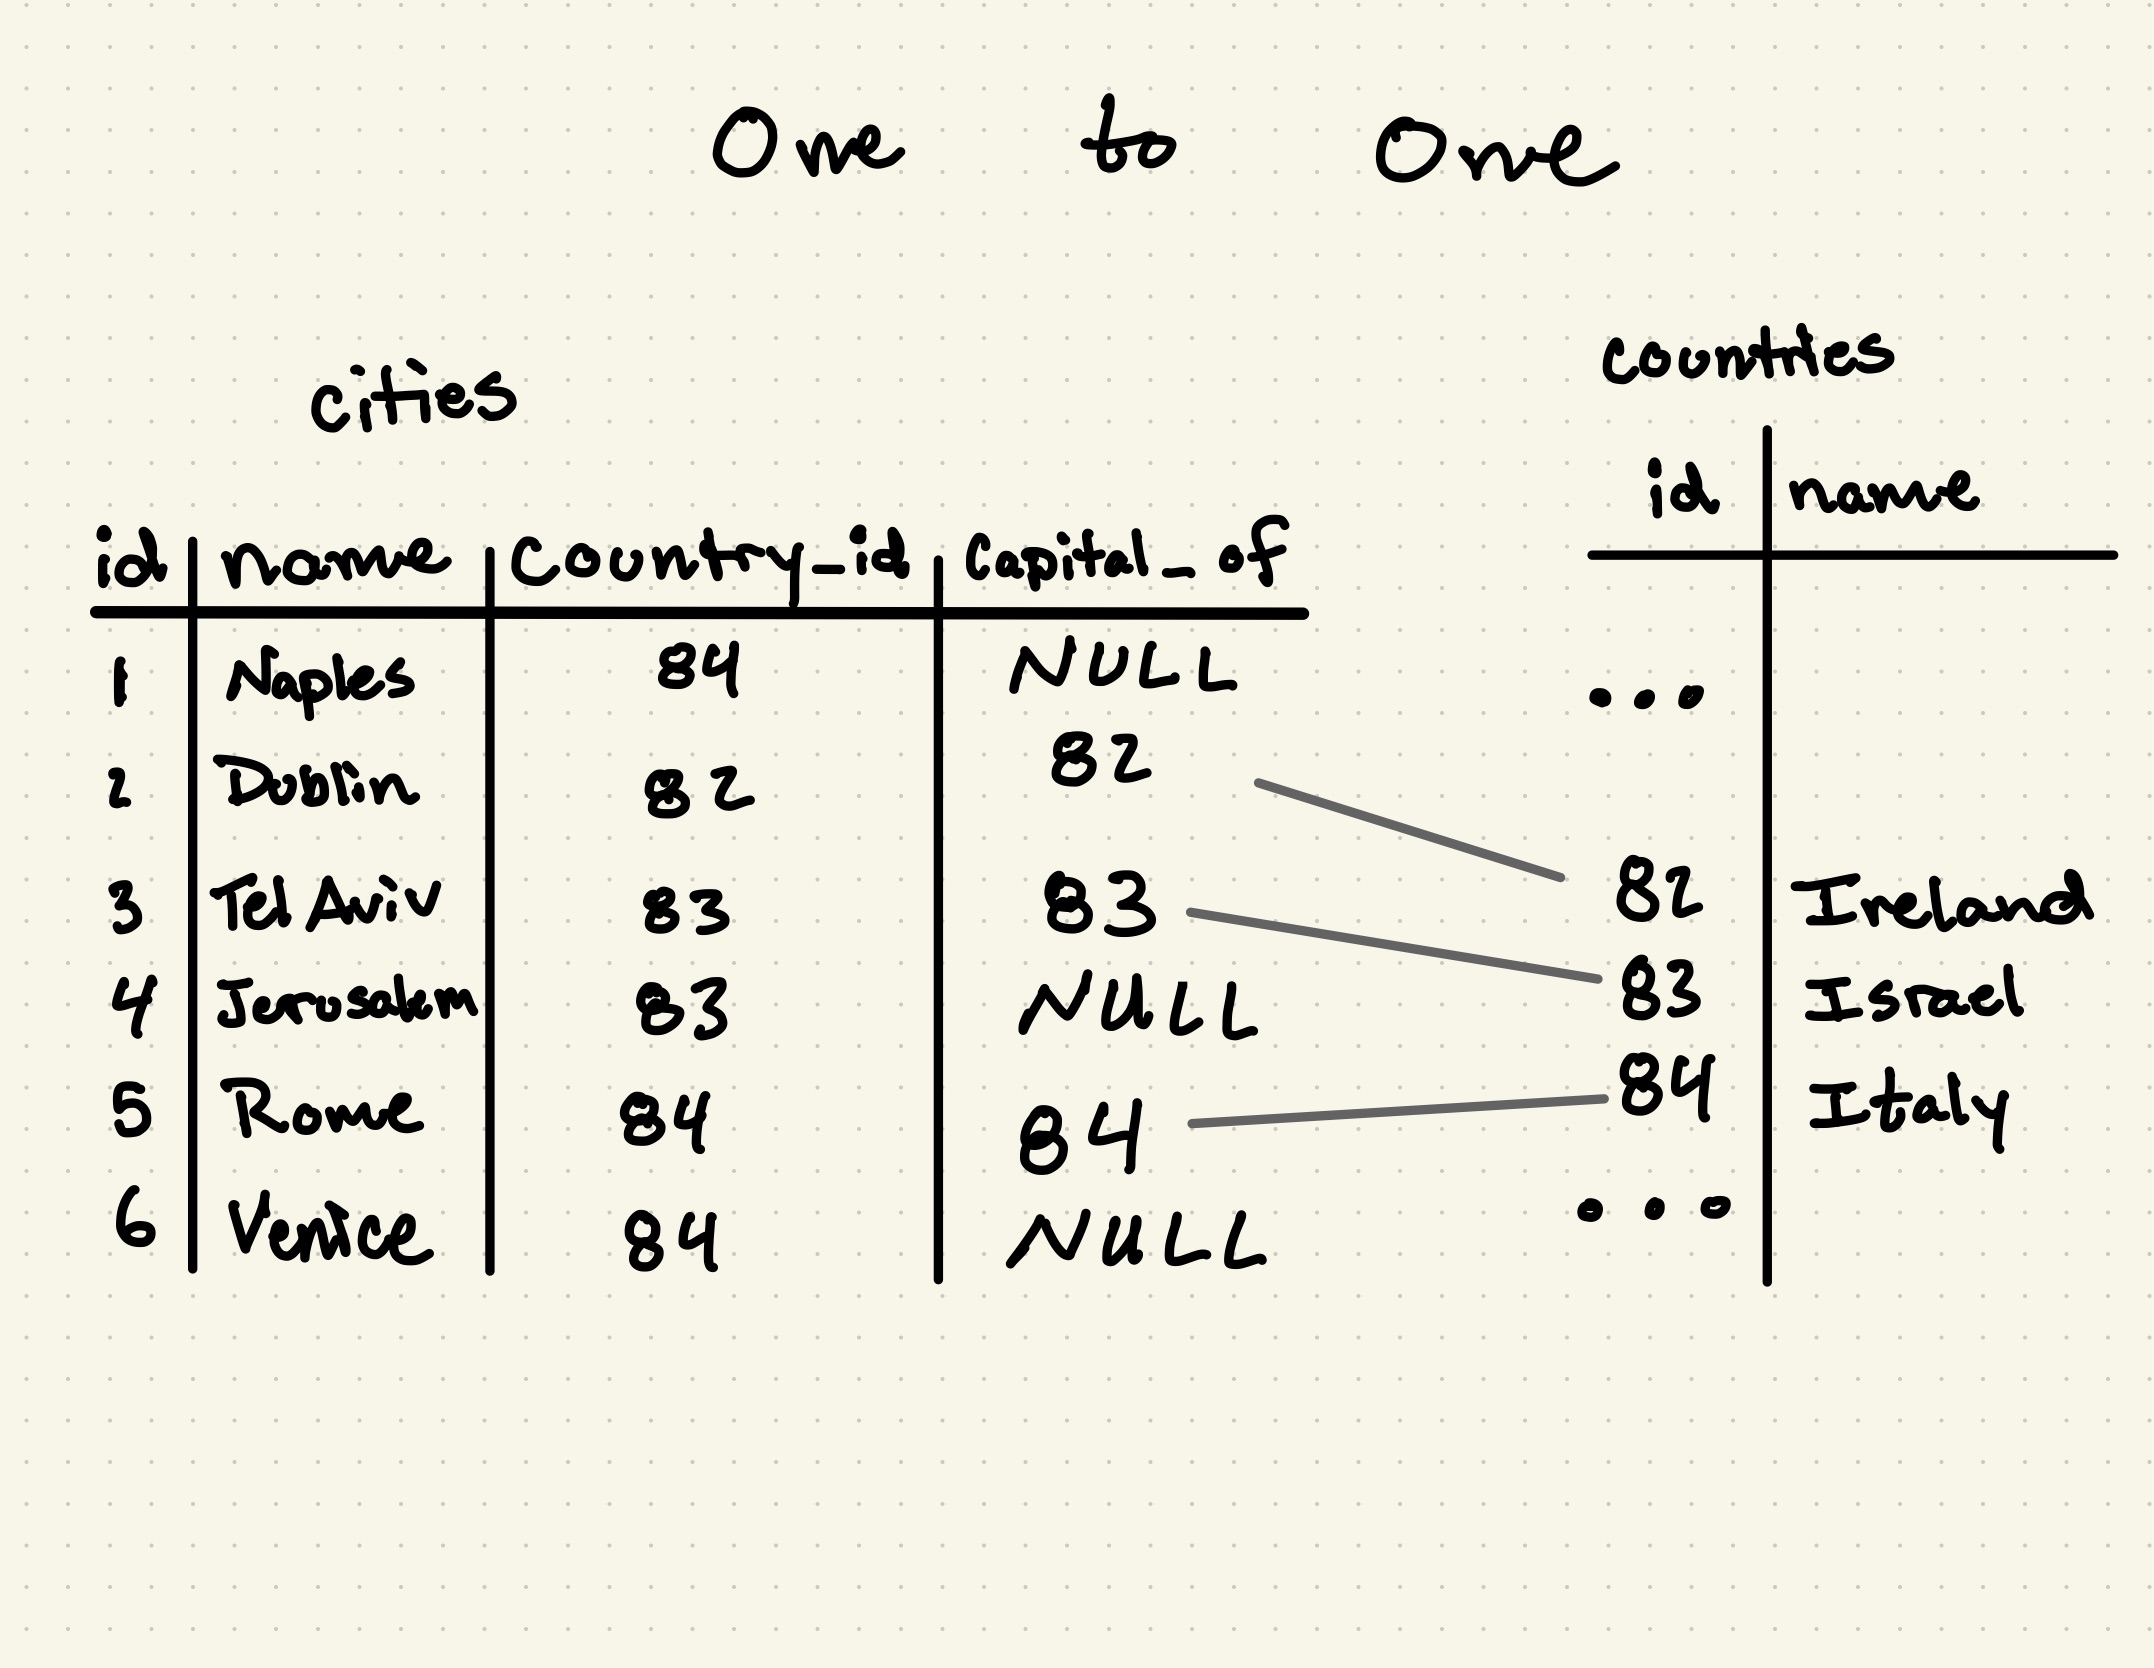 One to One
cities
countries
id name country_id capital_of
1 Naples 84 NULL
2 Dublin 82 82
3 Tel Aviv 83 83
4 Jerusalem 83 NULL
5 Rome 84 84
6 Venice 84 NULL
id name
...
82 Ireland
83 Israel
84 Italy
...